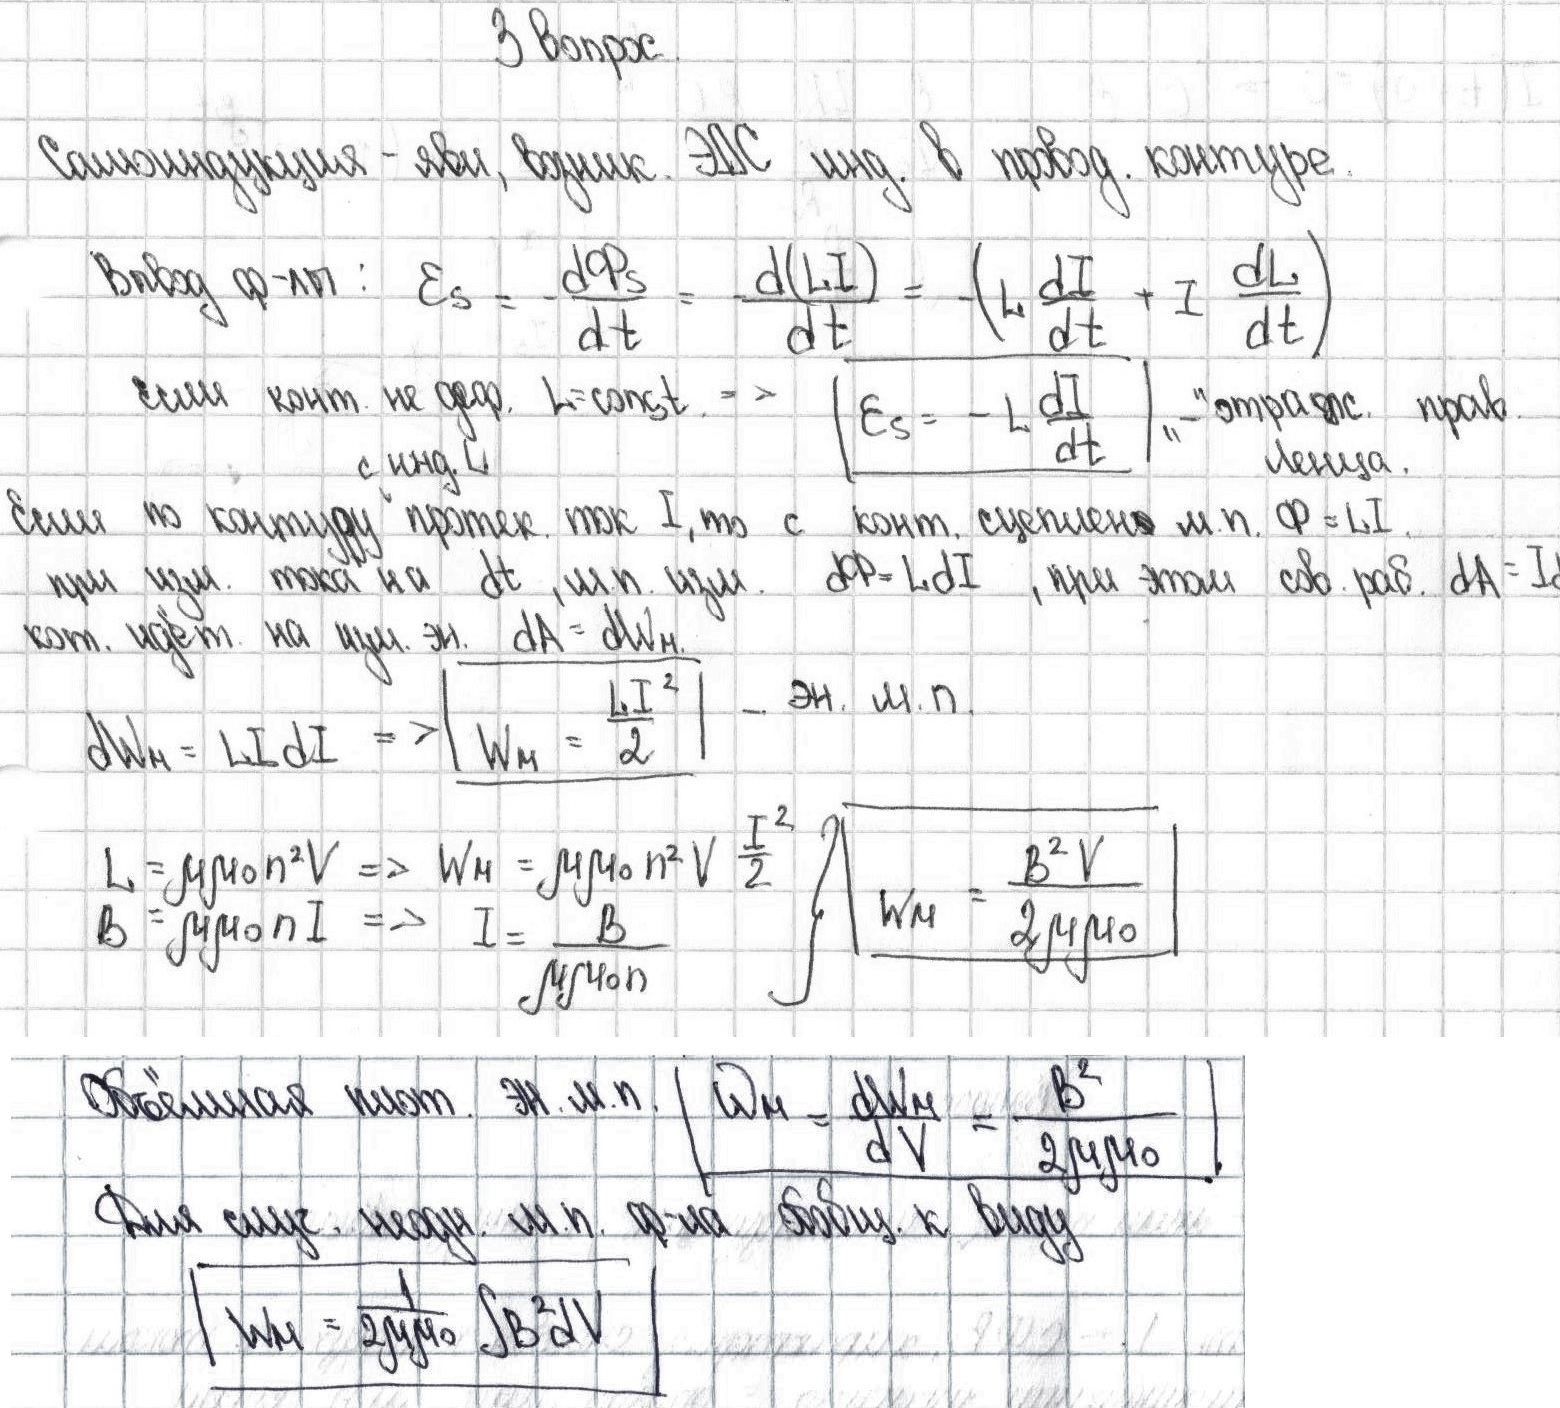 3 вопрос.
Самоиндукция - явл, возник. ЭДС инд. в провод. контуре.
Вывод ф-лы: Ɛs = -dΦs/dt = -d(LI)/dt = -(L dI/dt + I dL/dt)
Если конт. не деф. L=const. => Ɛs = -L dI/dt, "-" отраж. прав. Ленца.
с инд. L
Если по контуру протек. ток I, то с конт. сцеплено м.п. Φ = LI.
при изм. тока на dt, м.п. изм. dΦ = LdI, при этом сов. раб. dA = Id
кот. идёт. на изм. эн. dA = dWм.
dWм = LIdI => Wм = LI²/2 - эн. м.п.
L = μμ₀n²V => Wм = μμ₀n²V I²/2
B = μμ₀nI => I = B/μμ₀n
Wм = B²V/2μμ₀
Объёмная плот. эн. м.п. ωм = dWм/dV = B²/2μμ₀
Для случ. неодн. м.п. ф-ла обобщ. к виду
Wм = 1/2μμ₀ ∫B²dV